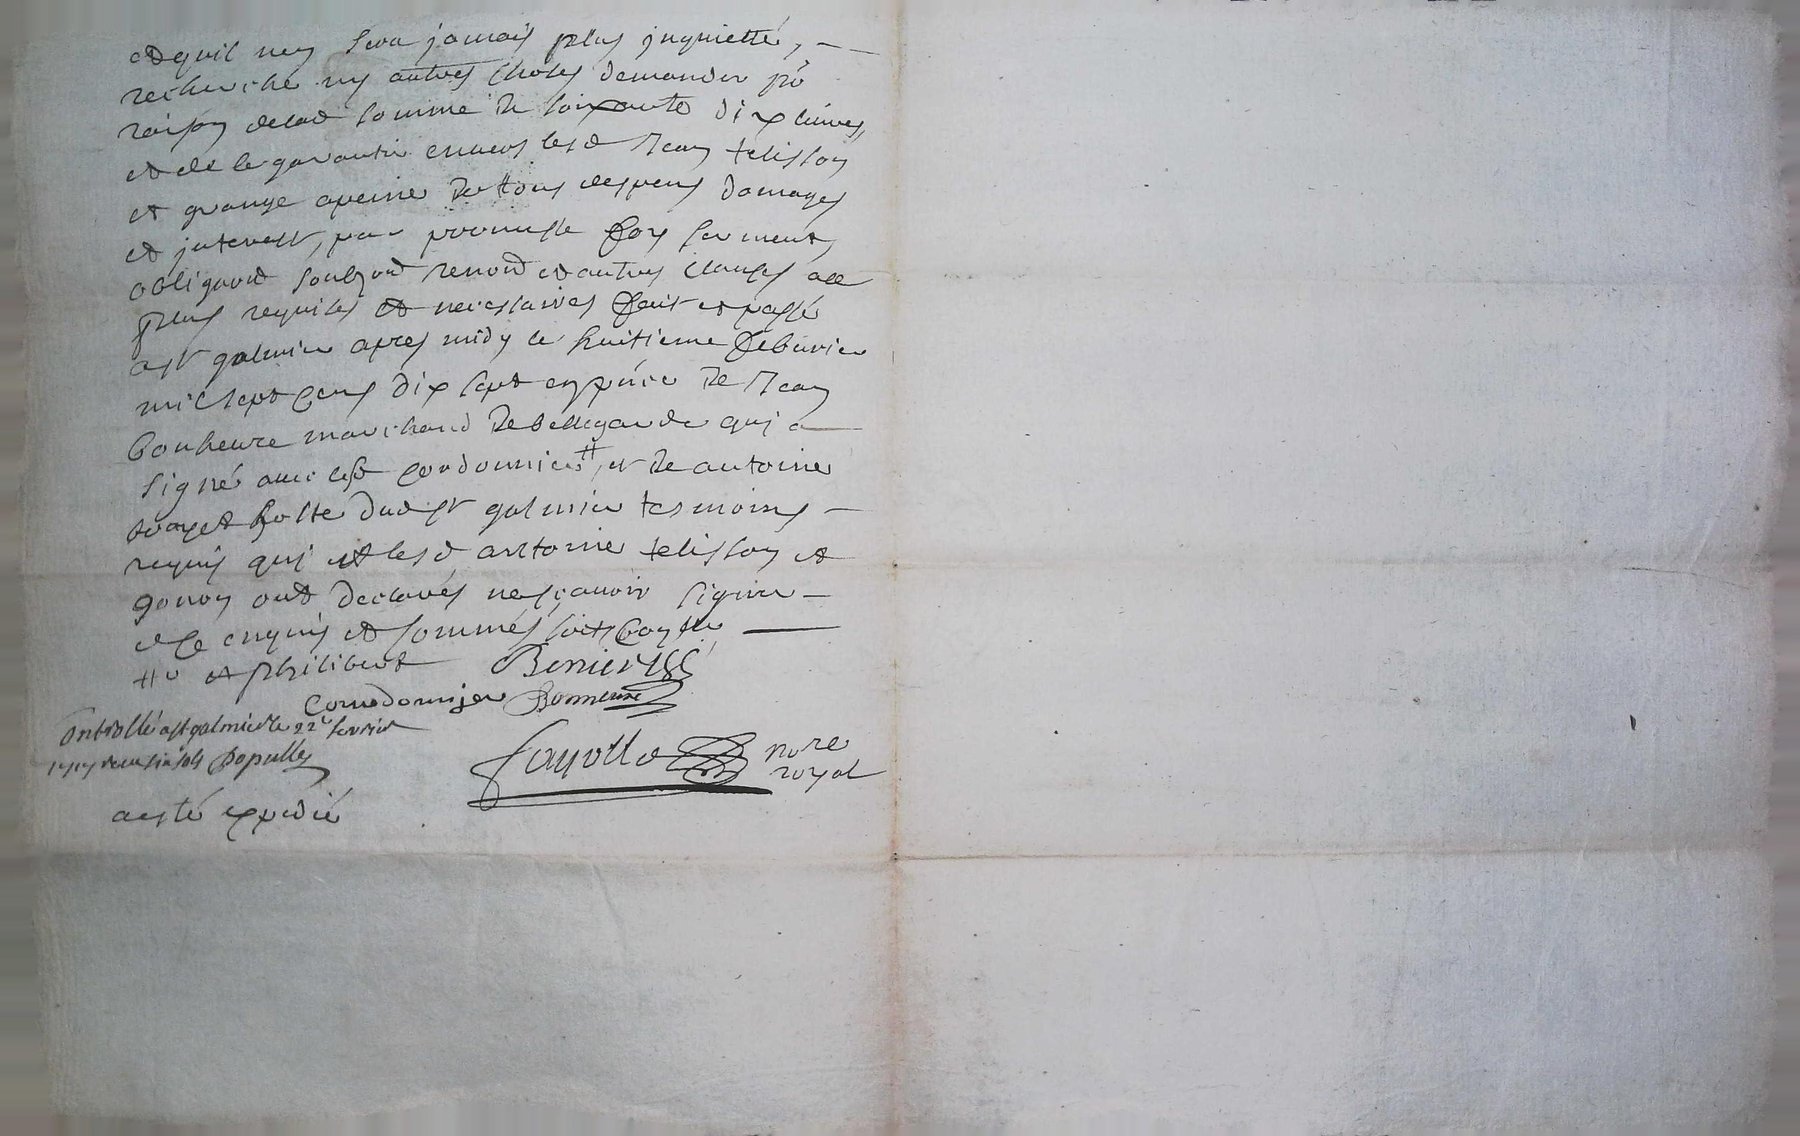 et quil nen sera jamais plus jnquietté,
recherché ny autres choses demander pr
raison delad somme de soixante dix livres,
et de le garantir envers lesd Jean telisson
et grange a peine de tous despens domages
et jnterest, par promesse foy serment,
obligaond soubzond renond et autres clauses au
plus requises et necessaires fait et passé
a st galmier apres midy le huitieme febvrier
mil sept cens dix sept en pnce de Jean
bonheure marchand de bellegarde qui a
signé avec lesd cordonnier #, et de antoine
hoste dud st galmier tesmoins
requis qui et lesd antoine telisson et
gonon ont declarés ne sçavoir signer
de ce enquis et sommés soit
# et philibert Benier
Cornedonnjer Bonneure
Controllé a st galmier le 22e fevrier
1717 sols Populle
Fayolle nore
royal
a esté expedié